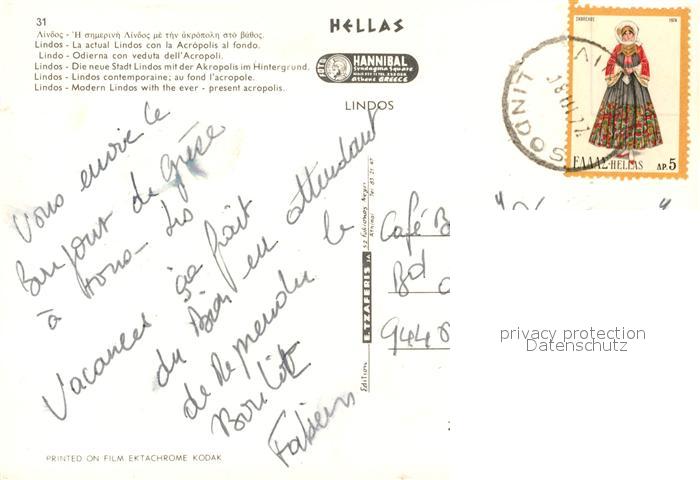 31
Λίνδος - Ἡ σημερινὴ Λίνδος μὲ τὴν ἀκρόπολη στὸ βάθος.
Lindos - La actual Lindos con la Acrópolis al fondo.
Lindo - Odierna con veduta dell'Acropoli.
Lindos - Die neue Stadt Lindos mit der Akropolis im Hintergrund.
Lindos - Lindos contemporaine; au fond l'acropole.
Lindos - Modern Lindos with the ever - present acropolis.
HELLAS
HANNIBAL
Syndagma Square
Athens GREECE
LINDOS
1974
ΕΛΛΑΣ-HELLAS
ΔΡ. 5
LINDOS
Vous envoie le
Bonjour de Grèce
à tous
Vacances ça fait
du Bien en attendant
de Reprendre le
Boulot
Fabien
Café B
Bd
944
Edition
E. TZAFERIS SA
privacy protection
Datenschutz
PRINTED ON FILM EKTACHROME KODAK